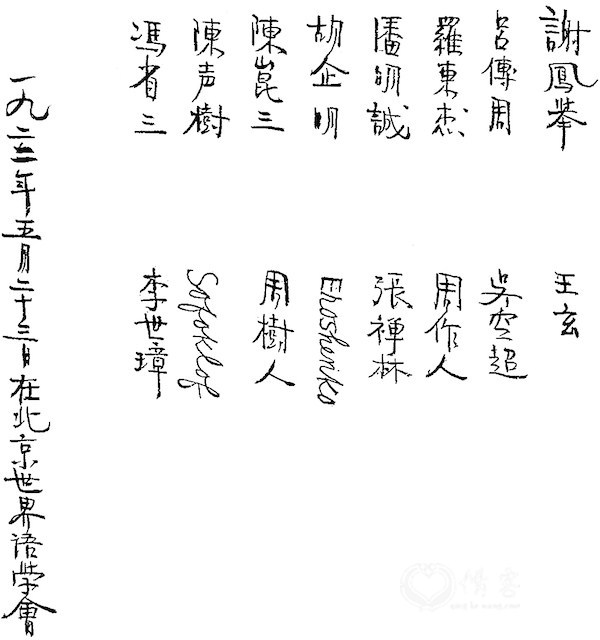 謝鳳舉
呂傳周
羅東杰
潘明誠
胡企明
陳崑三
陳声樹
馮省三
王玄
吳空超
周作人
張禪林
Eroshenko
周樹人
Sofoklof
李世璋
一九二二年五月二十三日在北京世界语学會